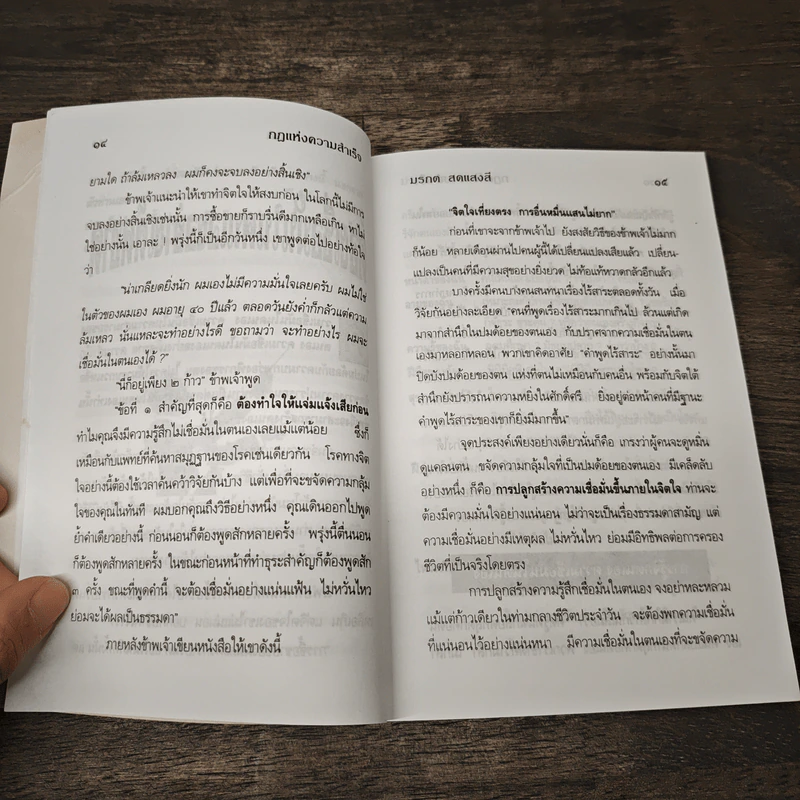 ๑๔
กฎแห่งความสำเร็จ
ยามใด ถ้าล้มเหลวลง ผมก็คงจะจบลงอย่างสิ้นเชิง"
ข้าพเจ้าแนะนำให้เขาทำจิตใจให้สงบก่อน ในโลกนี้ไม่มีการ
จบลงอย่างสิ้นเชิงเช่นนั้น การซื้อขายก็ราบรื่นดีมากเหลือเกิน หาไม่
ใช่อย่างนั้น เอาละ ! พรุ่งนี้ก็เป็นอีกวันหนึ่ง เขาพูดต่อไปอย่างท้อใจ
ว่า
"น่าเกลียดยิ่งนัก ผมเองไม่มีความมั่นใจเลยครับ ผมไม่ใช่
ในตัวของผมเอง ผมอายุ ๔๐ ปีแล้ว ตลอดวันยังค่ำก็กลัวแต่ความ
ล้มเหลว นั่นแหละจะทำอย่างไรดี ขอถามว่า จะทำอย่างไร ผมจะ
เชื่อมั่นในตนเองได้ ?"
"นี่ก็อยู่เพียง ๒ ก้าว" ข้าพเจ้าพูด
"ข้อที่ ๑ สำคัญที่สุดก็คือ ต้องทำใจให้แจ่มแจ้งเสียก่อน
ทำไมคุณจึงมีความรู้สึกไม่เชื่อมั่นในตนเองเลยแม้แต่น้อย ซึ่งก็
เหมือนกับแพทย์ที่ค้นหาสมุฏฐานของโรคเช่นเดียวกัน โรคทางจิต
ใจอย่างนี้ต้องใช้เวลาค้นคว้าวิจัยกันบ้าง แต่เพื่อที่จะขจัดความกลุ้ม
ใจของคุณในทันที ผมบอกคุณถึงวิธีอย่างหนึ่ง คุณเดินออกไปพูด
ย้ำคำเดียวอย่างนี้ ก่อนนอนก็ต้องพูดสักหลายครั้ง พรุ่งนี้ตื่นนอน
ก็ต้องพูดสักหลายครั้ง ในขณะก่อนหน้าที่ทำธุระสำคัญก็ต้องพูดสัก
๓ ครั้ง ขณะที่พูดคำนี้ จะต้องเชื่อมั่นอย่างแน่นแฟ้น ไม่หวั่นไหว
ย่อมจะได้ผลเป็นธรรมดา"
ภายหลังข้าพเจ้าเขียนหนังสือให้เขาดังนี้
มรกต สดแสงสี
๑๕
"จิตใจเที่ยงตรง การอื่นหมื่นแสนไม่ยาก"
ก่อนที่เขาจะจากข้าพเจ้าไป ยังสงสัยวิธีของข้าพเจ้าไม่มาก
ก็น้อย หลายเดือนผ่านไปคนผู้นี้ได้เปลี่ยนแปลงเสียแล้ว เปลี่ยน-
แปลงเป็นคนที่มีความสุขอย่างยิ่งยวด ไม่ท้อแท้หวาดกลัวอีกแล้ว
บางครั้งมีคนบางคนสนทนาเรื่องไร้สาระตลอดทั้งวัน เมื่อ
วิจัยกันอย่างละเอียด "คนที่พูดเรื่องไร้สาระมากเกินไป ล้วนแต่เกิด
มาจากสำนึกในปมด้อยของตนเอง กับปราศจากความเชื่อมั่นในตน
เองมาหลอกหลอน พวกเขาคิดอาศัย "คำพูดไร้สาระ" อย่างนั้นมา
ปิดบังปมด้อยของตน แห่งที่ตนไม่เหมือนกับคนอื่น พร้อมกับจิตใต้
สำนึกยังปรารถนาความหยิ่งในศักดิ์ศรี ยิ่งอยู่ต่อหน้าคนที่มีฐานะ
คำพูดไร้สาระของเขาก็ยิ่งมีมากขึ้น"
จุดประสงค์เพียงอย่างเดียวนั่นก็คือ เกรงว่าผู้คนจะดูหมิ่น
ดูแคลนตน ขจัดความกลุ้มใจที่เป็นปมด้อยของตนเอง มีเคล็ดลับ
อย่างหนึ่ง ก็คือ การปลูกสร้างความเชื่อมั่นขึ้นภายในจิตใจ ท่านจะ
ต้องมีความมั่นใจอย่างแน่นอน ไม่ว่าจะเป็นเรื่องธรรมดาสามัญ แต่
ความเชื่อมั่นอย่างมีเหตุผล ไม่หวั่นไหว ย่อมมีอิทธิพลต่อการครอง
ชีวิตที่เป็นจริงโดยตรง
การปลูกสร้างความรู้สึกเชื่อมั่นในตนเอง จงอย่าหละหลวม
แม้แต่ก้าวเดียวในท่ามกลางชีวิตประจำวัน จะต้องพกความเชื่อมั่น
ที่แน่นอนไว้อย่างแน่นหนา มีความเชื่อมั่นในตนเองที่จะขจัดความ